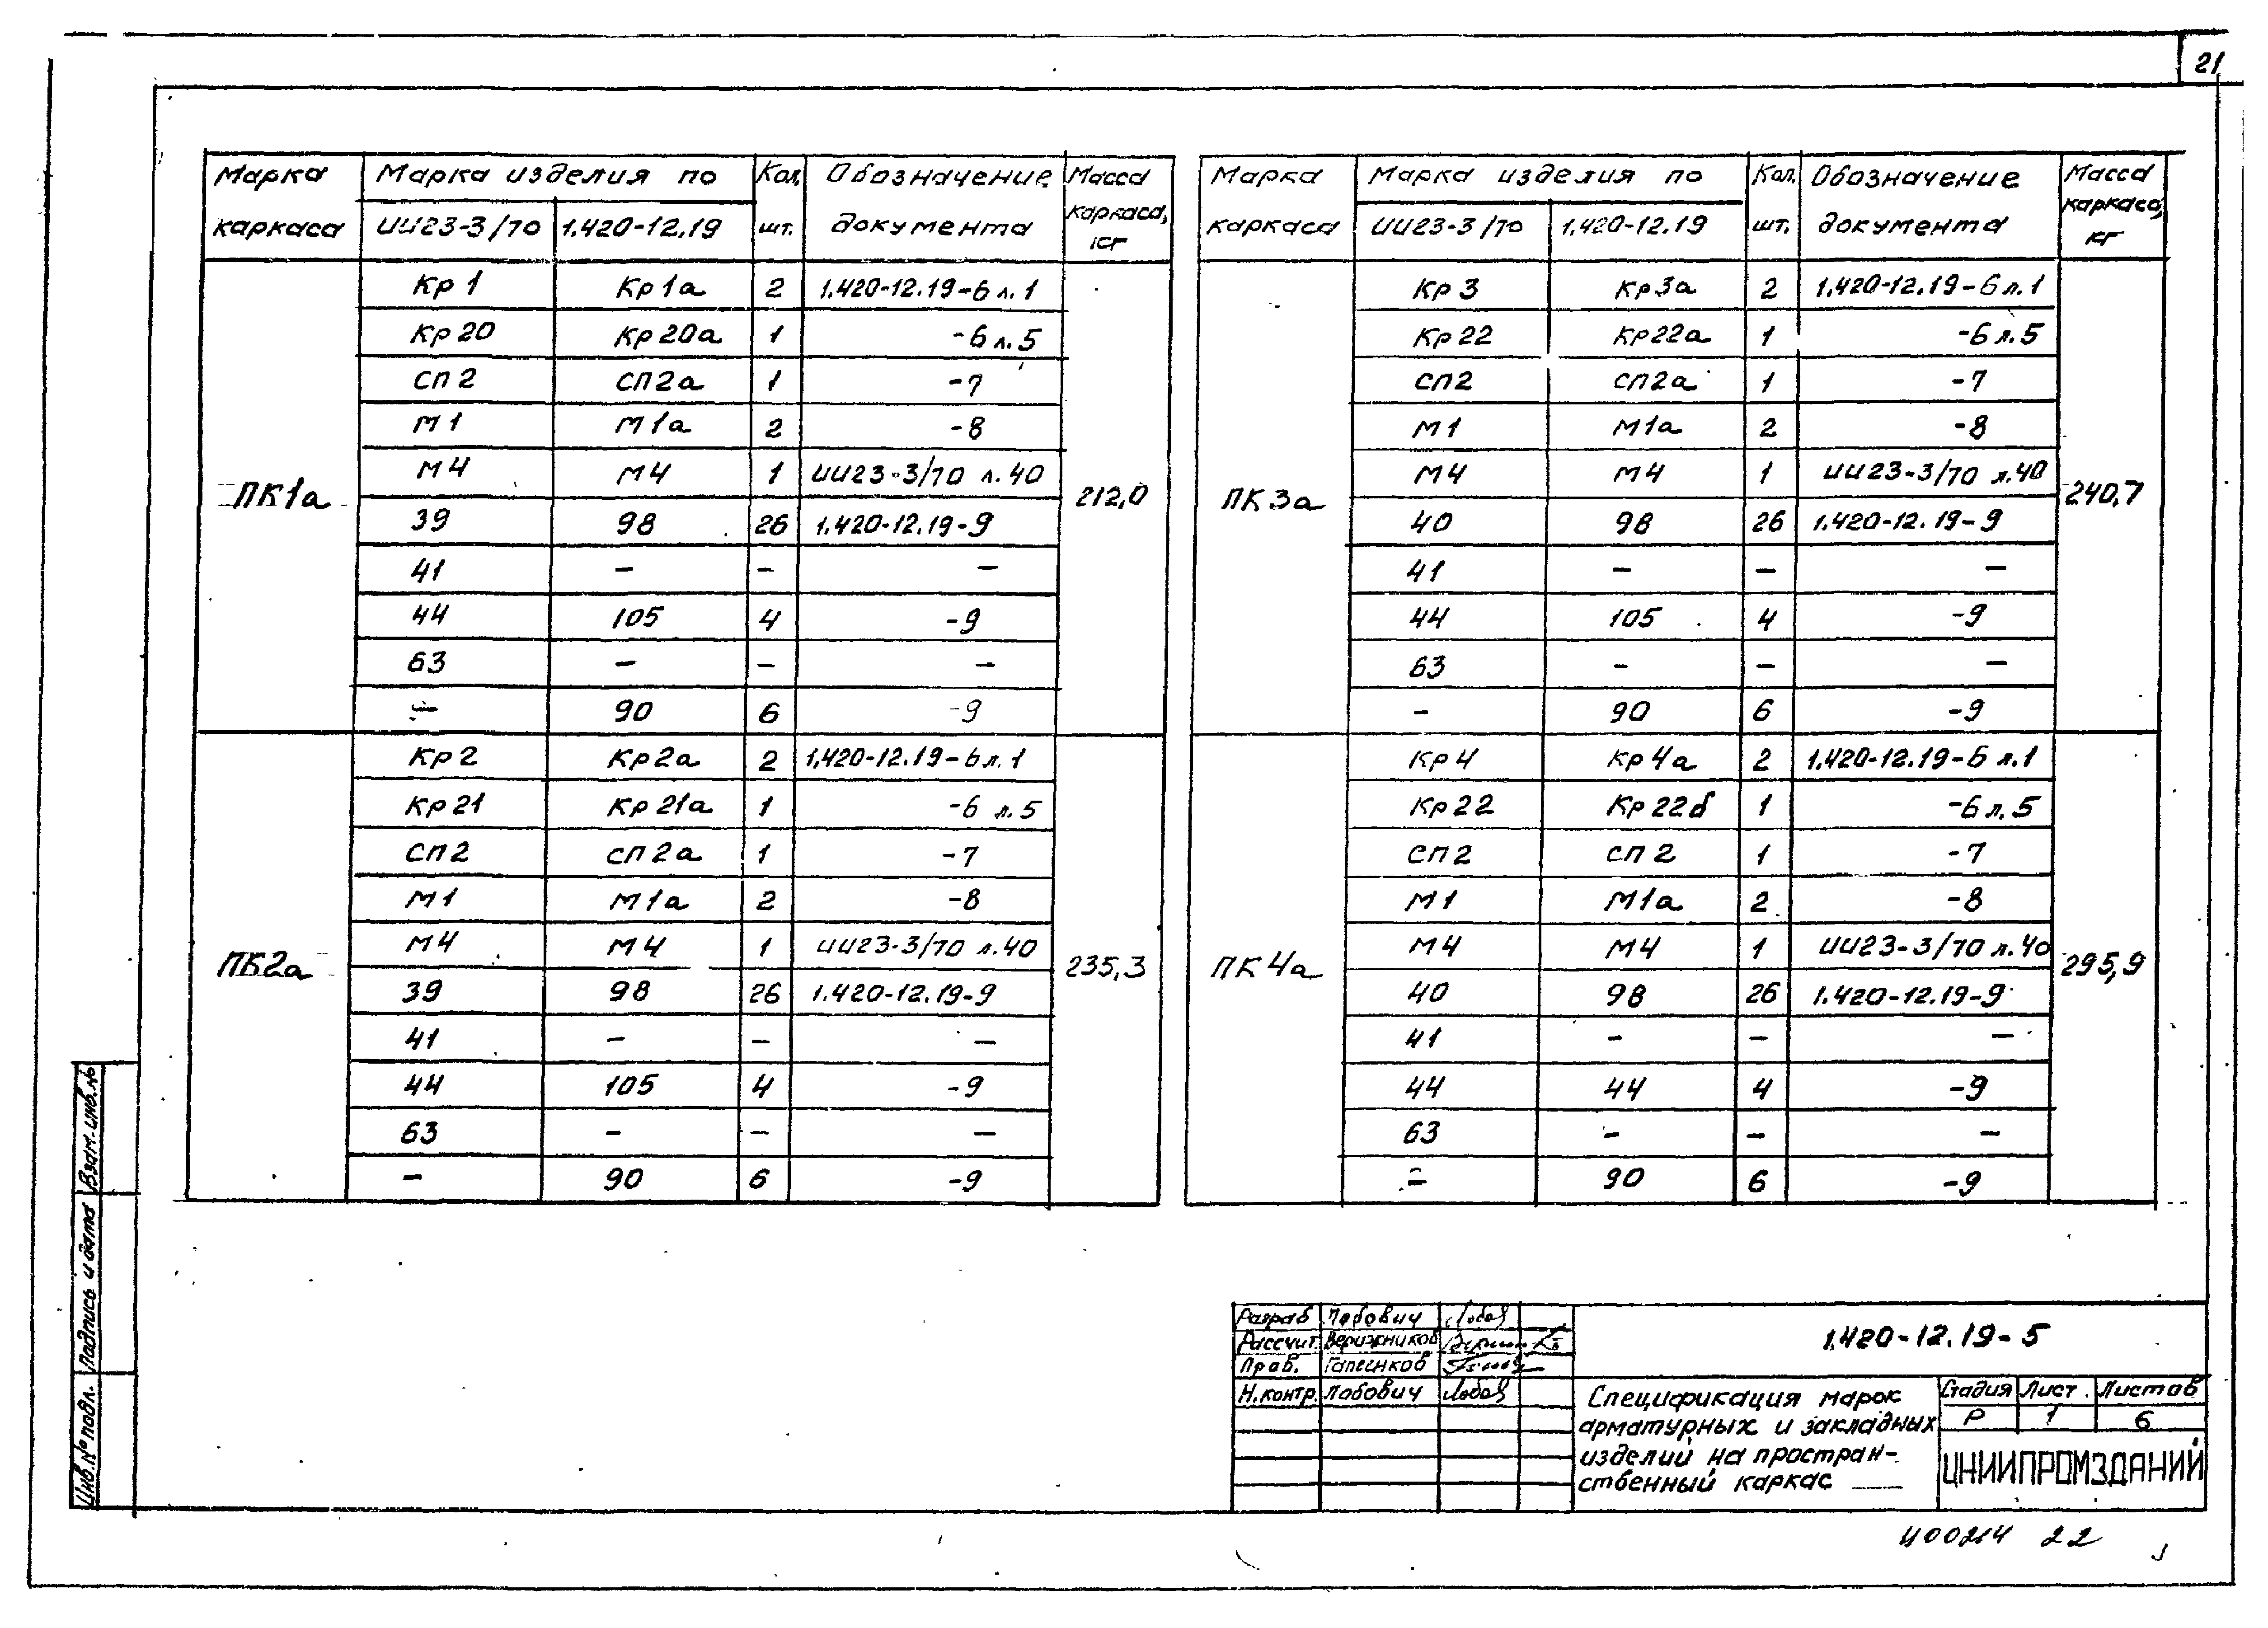 21
Марка каркаса | Марка изделия по | Кол. шт. | Обозначение документа | Масса каркаса, кг
ИИ23-3/70 | 1.420-12.19
ПК1а | 212,0
Кр1 | Кр1а | 2 | 1.420-12.19-6 л.1
Кр20 | Кр20а | 1 | -6 л.5
СП2 | СП2а | 1 | -7
М1 | М1а | 2 | -8
М4 | М4 | 1 | ИИ23-3/70 л.40
39 | 98 | 26 | 1.420-12.19-9
41 | – | – | –
44 | 105 | 4 | -9
63 | – | – | –
– | 90 | 6 | -9
ПК2а | 235,3
Кр2 | Кр2а | 2 | 1.420-12.19-6 л.1
Кр21 | Кр21а | 1 | -6 л.5
СП2 | СП2а | 1 | -7
М1 | М1а | 2 | -8
М4 | М4 | 1 | ИИ23-3/70 л.40
39 | 98 | 26 | 1.420-12.19-9
41 | – | – | –
44 | 105 | 4 | -9
63 | – | – | –
– | 90 | 6 | -9
Марка каркаса | Марка изделия по | Кол. шт. | Обозначение документа | Масса каркаса, кг
ИИ23-3/70 | 1.420-12.19
ПК3а | 240,7
Кр3 | Кр3а | 2 | 1.420-12.19-6 л.1
Кр22 | Кр22а | 1 | -6 л.5
СП2 | СП2а | 1 | -7
М1 | М1а | 2 | -8
М4 | М4 | 1 | ИИ23-3/70 л.40
40 | 98 | 26 | 1.420-12.19-9
41 | – | – | –
44 | 105 | 4 | -9
63 | – | – | –
– | 90 | 6 | -9
ПК4а | 295,9
Кр4 | Кр4а | 2 | 1.420-12.19-6 л.1
Кр22 | Кр22б | 1 | -6 л.5
СП2 | СП2 | 1 | -7
М1 | М1а | 2 | -8
М4 | М4 | 1 | ИИ23-3/70 л.40
40 | 98 | 26 | 1.420-12.19-9
41 | – | – | –
44 | 44 | 4 | -9
63 | – | – | –
– | 90 | 6 | -9
Взам. инв. №
Подпись и дата
Инв. № подл.
Разраб | Лобович
Рассчит. | Верижников
Пров. | Гапеенков
Н.контр. | Лобович
1.420-12.19-5
Спецификация марок
арматурных и закладных
изделий на простран-
ственный каркас
Стадия | Лист | Листов
Р | 1 | 6
ЦНИИПРОМЗДАНИЙ
Ц00214 22